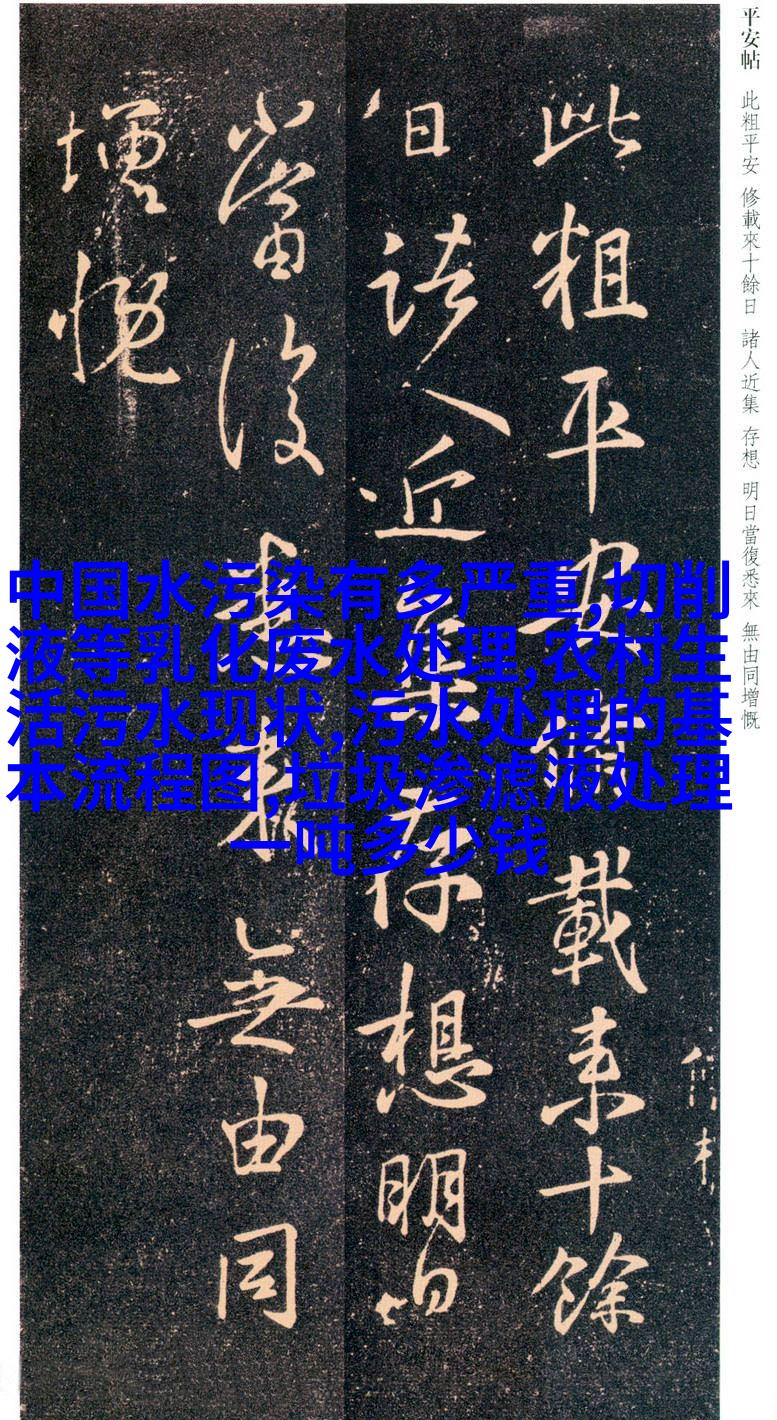 平安帖 此粗平安 修載來十餘日 諸人近集 存想 明日當復悉來 無由同增慨
此粗平安脩載来十餘
日諸人近集存想明日
當復悉来無由同
增慨
中国水污染有多严重,切削
液等乳化废水处理,农村生
活污水现状,污水处理的基
本流程图,垃圾渗滤液处理
一吨多少钱